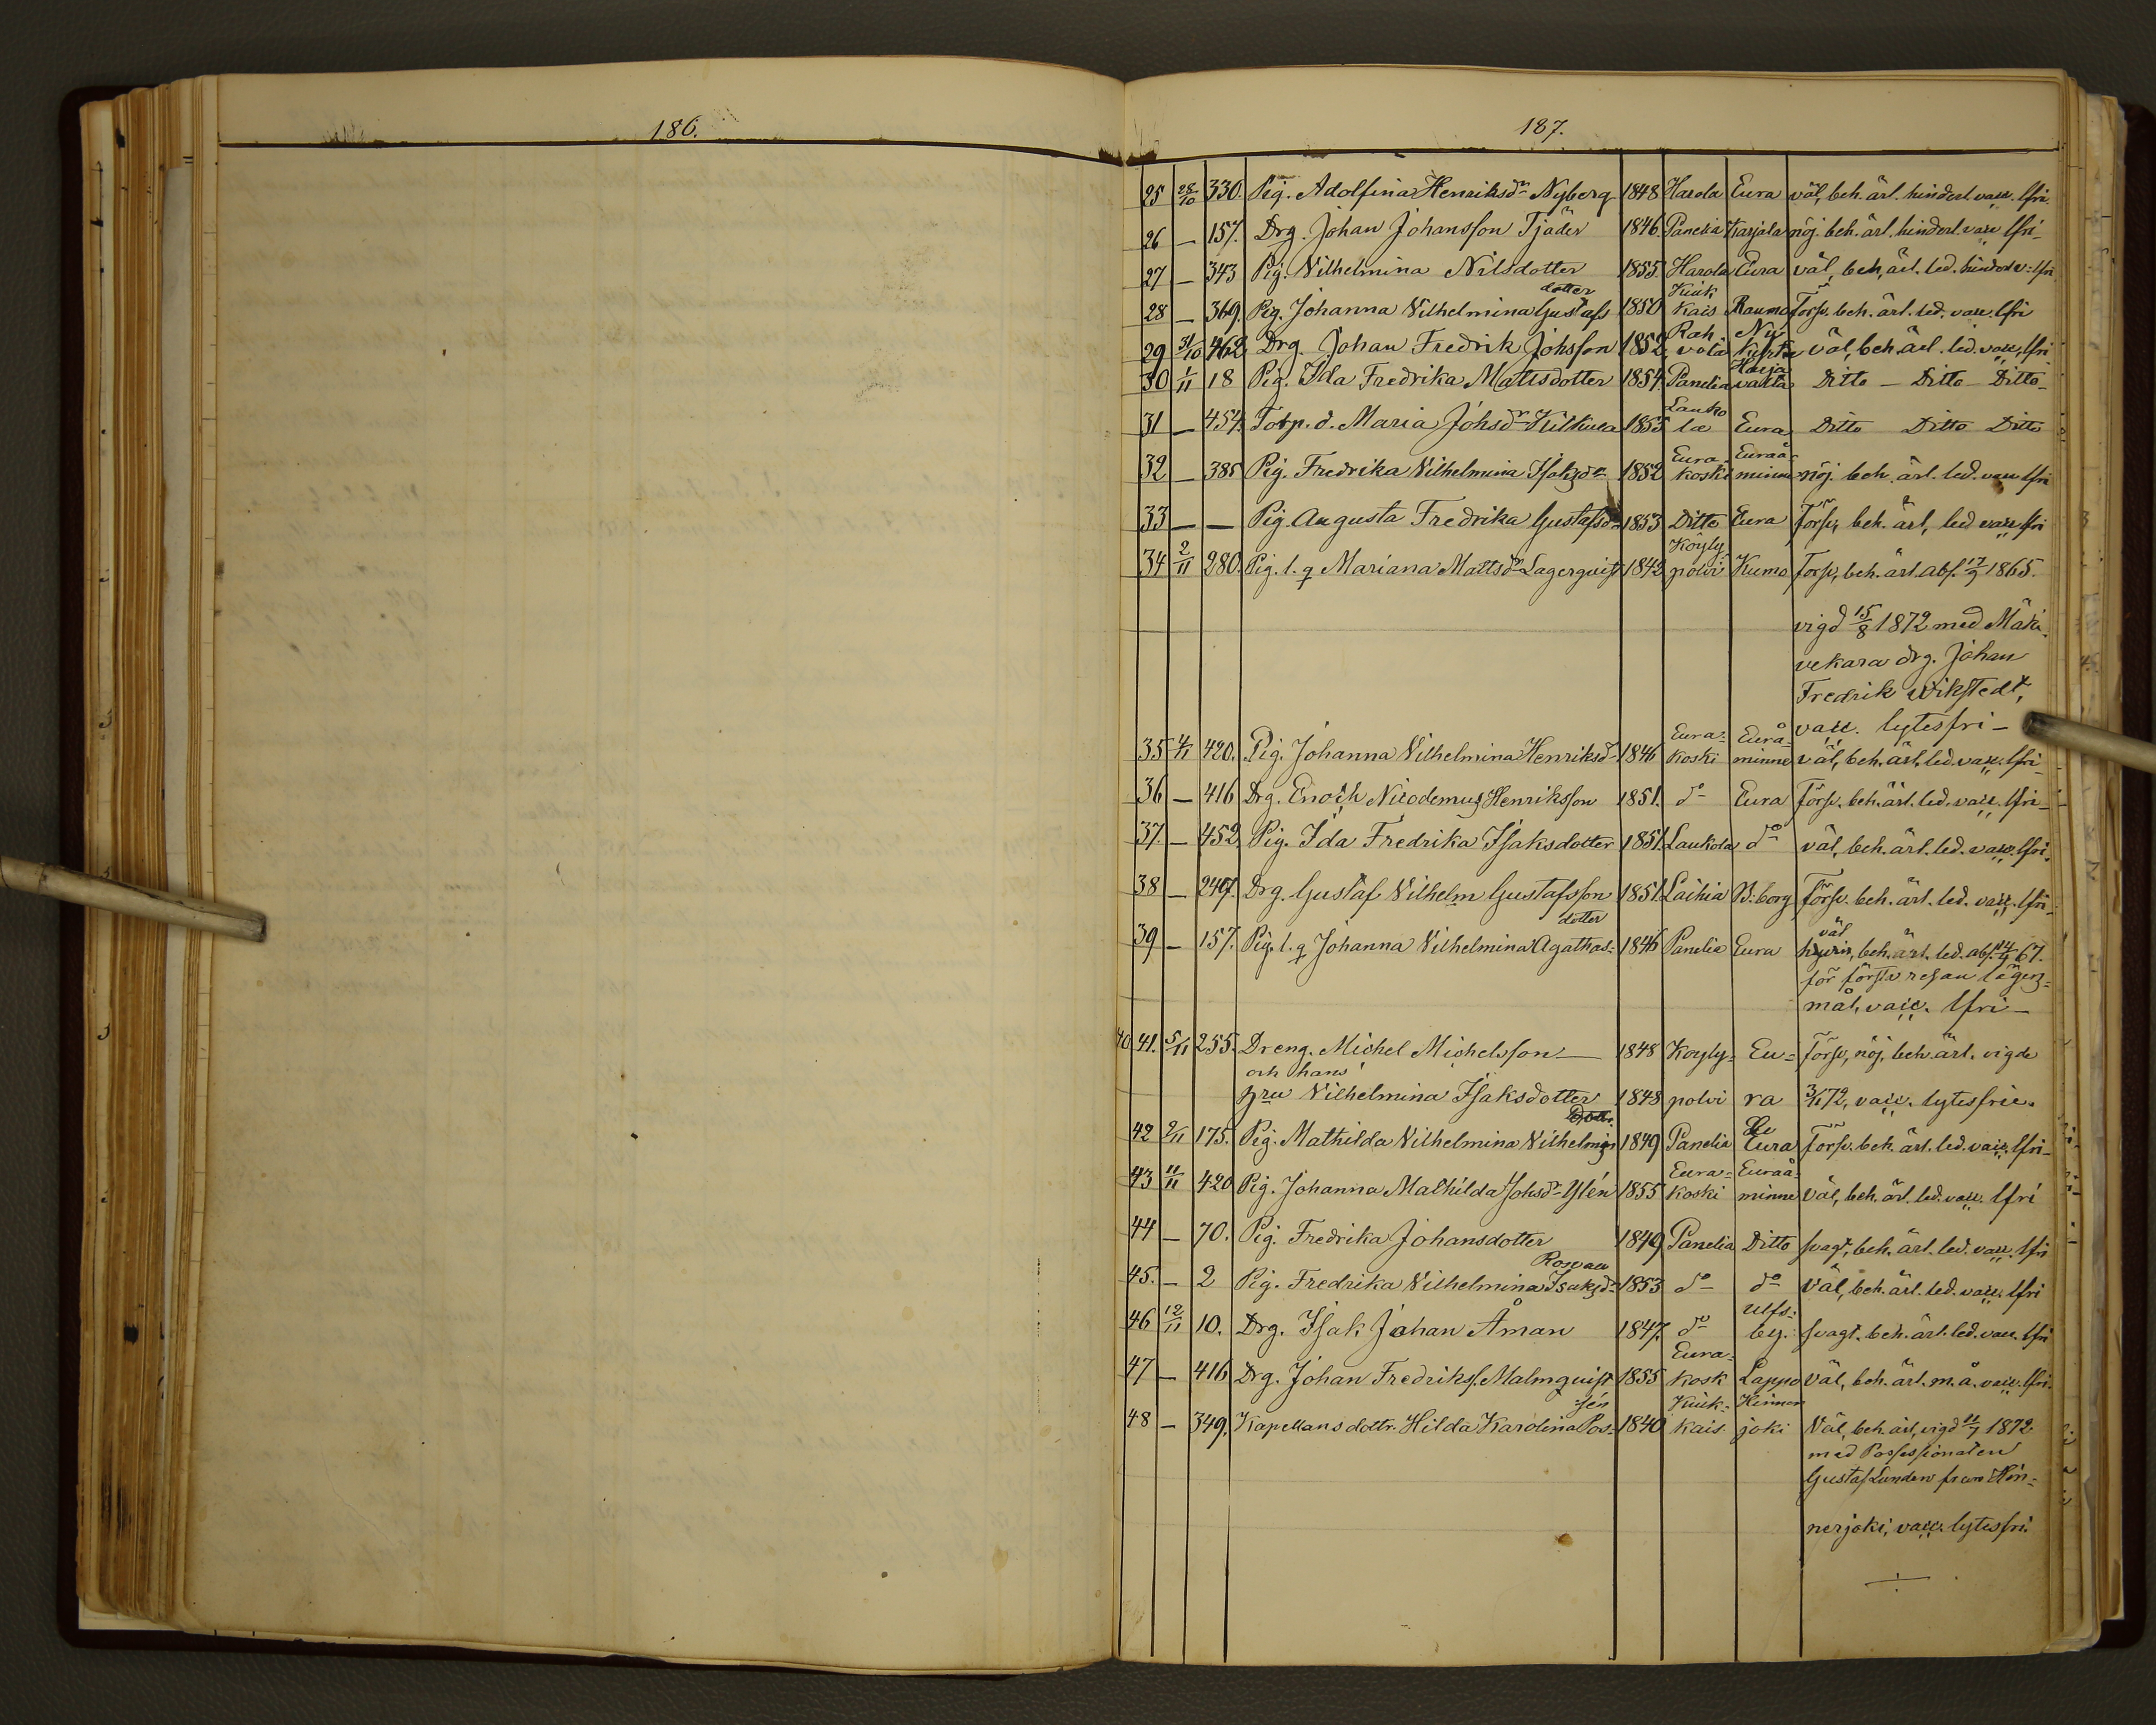 186.
187.
25 28/10 330. Pig. Adolfina Henriksdr Nyberg 1848 Harola Eura väl, beh. ärl. hinderl. vacc. lfri.
26 — 157. Drg. Johan Johansson Tjäder 1846. Panelia Karjala nöj. beh. ärl. hinderl. vacc lfri-
27 — 343 Pig. Vilhelmina Nilsdotter 1855. Harola Eura väl, beh, ärl. led. hinderl v: lfri
dotter Kiuk
28 — 369. Pig. Johanna Vilhelmina Gustafs 1850 kais Raumo Försv. beh. ärl. led. vacc. lfri
Rah Ny
29 31/10 462. Drg. Johan Fredrik Johsson 1852, vola kyrka väl, beh. ärl. led. vacc. lfri
Harja
30 1/11 18 Pig. Ida Fredrika Mattsdotter 1854. Panelia valta Ditto — Ditto — Ditto-
Lauko
31 — 454. Torp. d. Maria Johsdr Kilkura 1855 la Eura Ditto Ditto Ditto
Eura- Euraå-
32 — 385 Pig. Fredrika Vilhelmina Isaksdr 1852 koski minne nöj. beh. ärl. led. vacc lfri
33 — — Pig. Augusta Fredrika Gustafsdr 1853 Ditto Eura Försv, beh. ärl, led vacc lfri
Köyly
34 2/11 280. Pig. l. q Mariana Mattsdr Lagerquist 1842 polvi Kumo Försv, beh. ärl. abs. 17/9 1865.
vigd 15/8 1872 med Mäki-
vekara drg. Johan
Fredrik Wikstedt,
vacc. lytesfri-
Eura- Eurå-
35 4/11 420. Pig. Johanna Vilhelmina Henriksdr 1846 koski minne väl, beh. ärl. led. vacc. lfri-
36 — 416 Drg. Enoch Nicodemus Henriksson 1851. do Eura Försv. beh. ärl. led. vacc. lfri-
37. — 452. Pig. Ida Fredrika Isaksdotter 1851. Laukola do väl, beh. ärl. led. vacc. lfri.
38 — 247. Drg. Gustaf Vilhelm Gustafsson 1851. Laihia B:borg Försv. beh. ärl. led. vacc. lfri-
dotter väl
39 — 157. Pig. l. q Johanna Vilhelmina Agathas- 1846 Panelia Eura beh. ärl. led. abs. 14/4 67.
för första resan lägers-
mål, vacc. lfri-
40 41. 5/11 255. Dreng. Michel Michelsson — 1848 Köyly- Eu- Försv, nöj, beh. ärl. vigde
och hans
hru Vilhelmina Isaksdotter 1848 polvi ra 3/11 72, vacc. lytesfrie.
Dott.
42 2/11 175. Pig. Mathilda Vilhelmina Vilhelmin 1849 Panelia Eura Försv. beh. ärl. led. vacc. lfri-
Eura- Euraå-
43 11/11 420 Pig. Johanna Mathilda Johsdr Ylén 1855 koski minne väl, beh. ärl. led. vacc. lfri
44 — 70. Pig. Fredrika Johansdotter 1849 Panelia Ditto svagt, beh. ärl. led. vacc. lfri
Rosvau
45. — 2 Pig. Fredrika Vilhelmina Isaksdr 1853 do do Väl, beh. ärl. led. vacc. lfri
Ulfs-
46 12/11 10. Drg. Isak Johan Åman 1847. do by. svagt. beh. ärl. led. vacc. lfri
Eura-
47 — 416 Drg. Johan Fredrikss. Malmquist 1855 kosk Lappo väl, beh. ärl. m. å. vacc. lfri.
sén Kiuk- Hinner
48 — 349. Kapellans dottr. Hilda Karolina Pos- 1840 kais. joki Väl, beh. ärl, vigd 11/7 1872
med Possessionaten
Gustaf Lunden från Hin-
nerjoki, vacc. lytesfri.